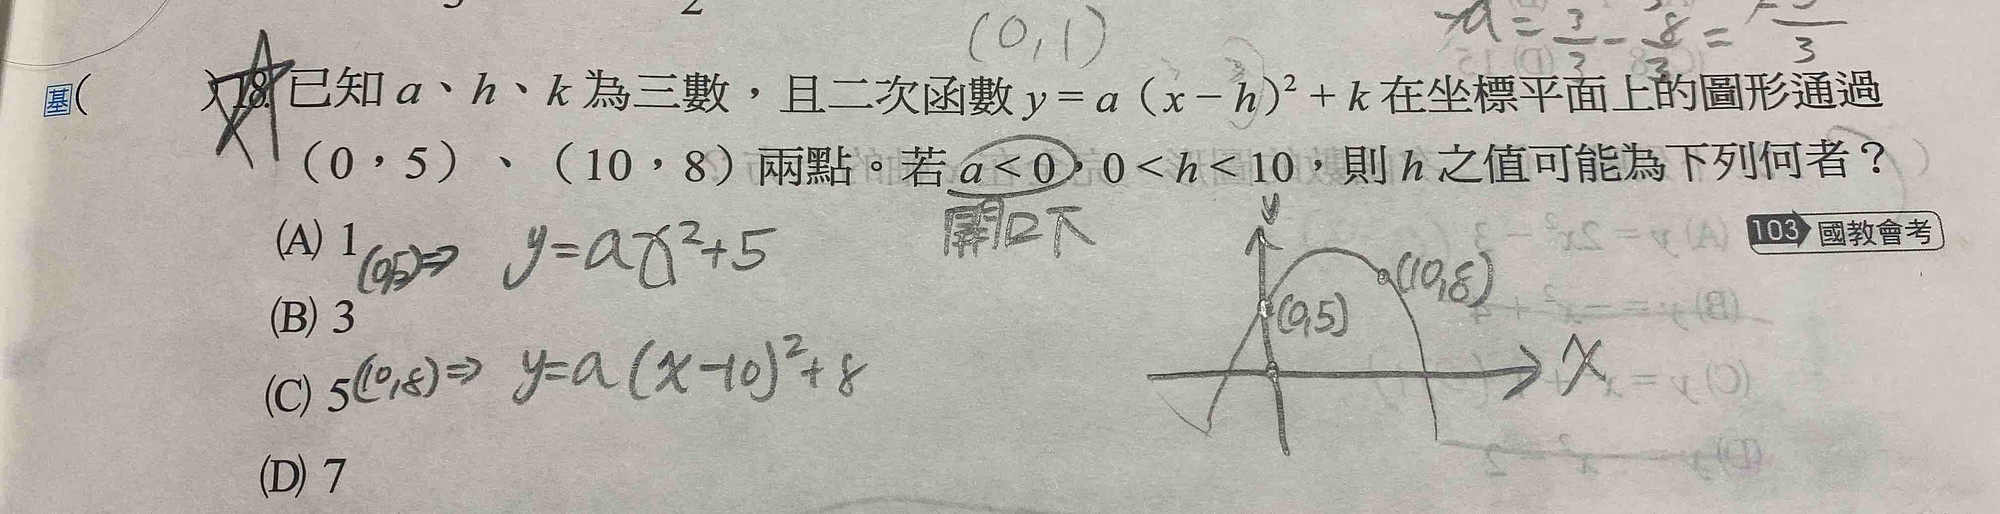 (0,1)
基( )18.已知 a、h、k 為三數，且二次函數 y = a（x − h）² + k 在坐標平面上的圖形通過
（0，5）、（10，8）兩點。若 a < 0，0 < h < 10，則 h 之值可能為下列何者？
開口下
103 國教會考
(A) 1
(0,5)⇒ y=ax²+5
(B) 3
(C) 5
(10,8)⇒ y=a(x-10)²+8
(D) 7
y
(10,8)
(0,5)
x